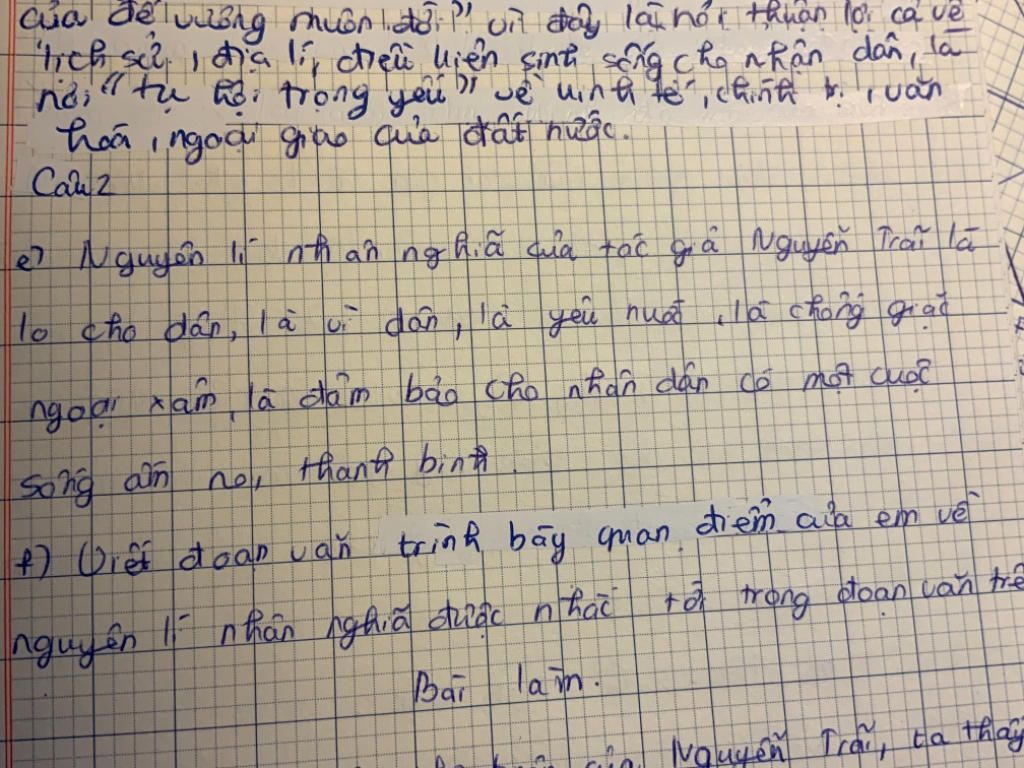 của đế vương muôn đời" vì đây là nơi thuận lợi cả về
lịch sử, địa lí, điều kiện sinh sống cho nhân dân, là
nơi "tụ hội trọng yếu" về kinh tế, chính trị, văn
hoá, ngoại giao của đất nước.
Câu 2
e) Nguyên lí nhân nghĩa của tác giả Nguyễn Trãi là
lo cho dân, là vì dân, là yêu nước, là chống giặc
ngoại xâm, là đảm bảo cho nhân dân có một cuộc
sống ấm no, thanh bình
f) Viết đoạn văn trình bày quan điểm của em về
nguyên lí nhân nghĩa được nhắc tới trong đoạn văn trê
Bài làm.
Nguyễn Trãi, ta thấy